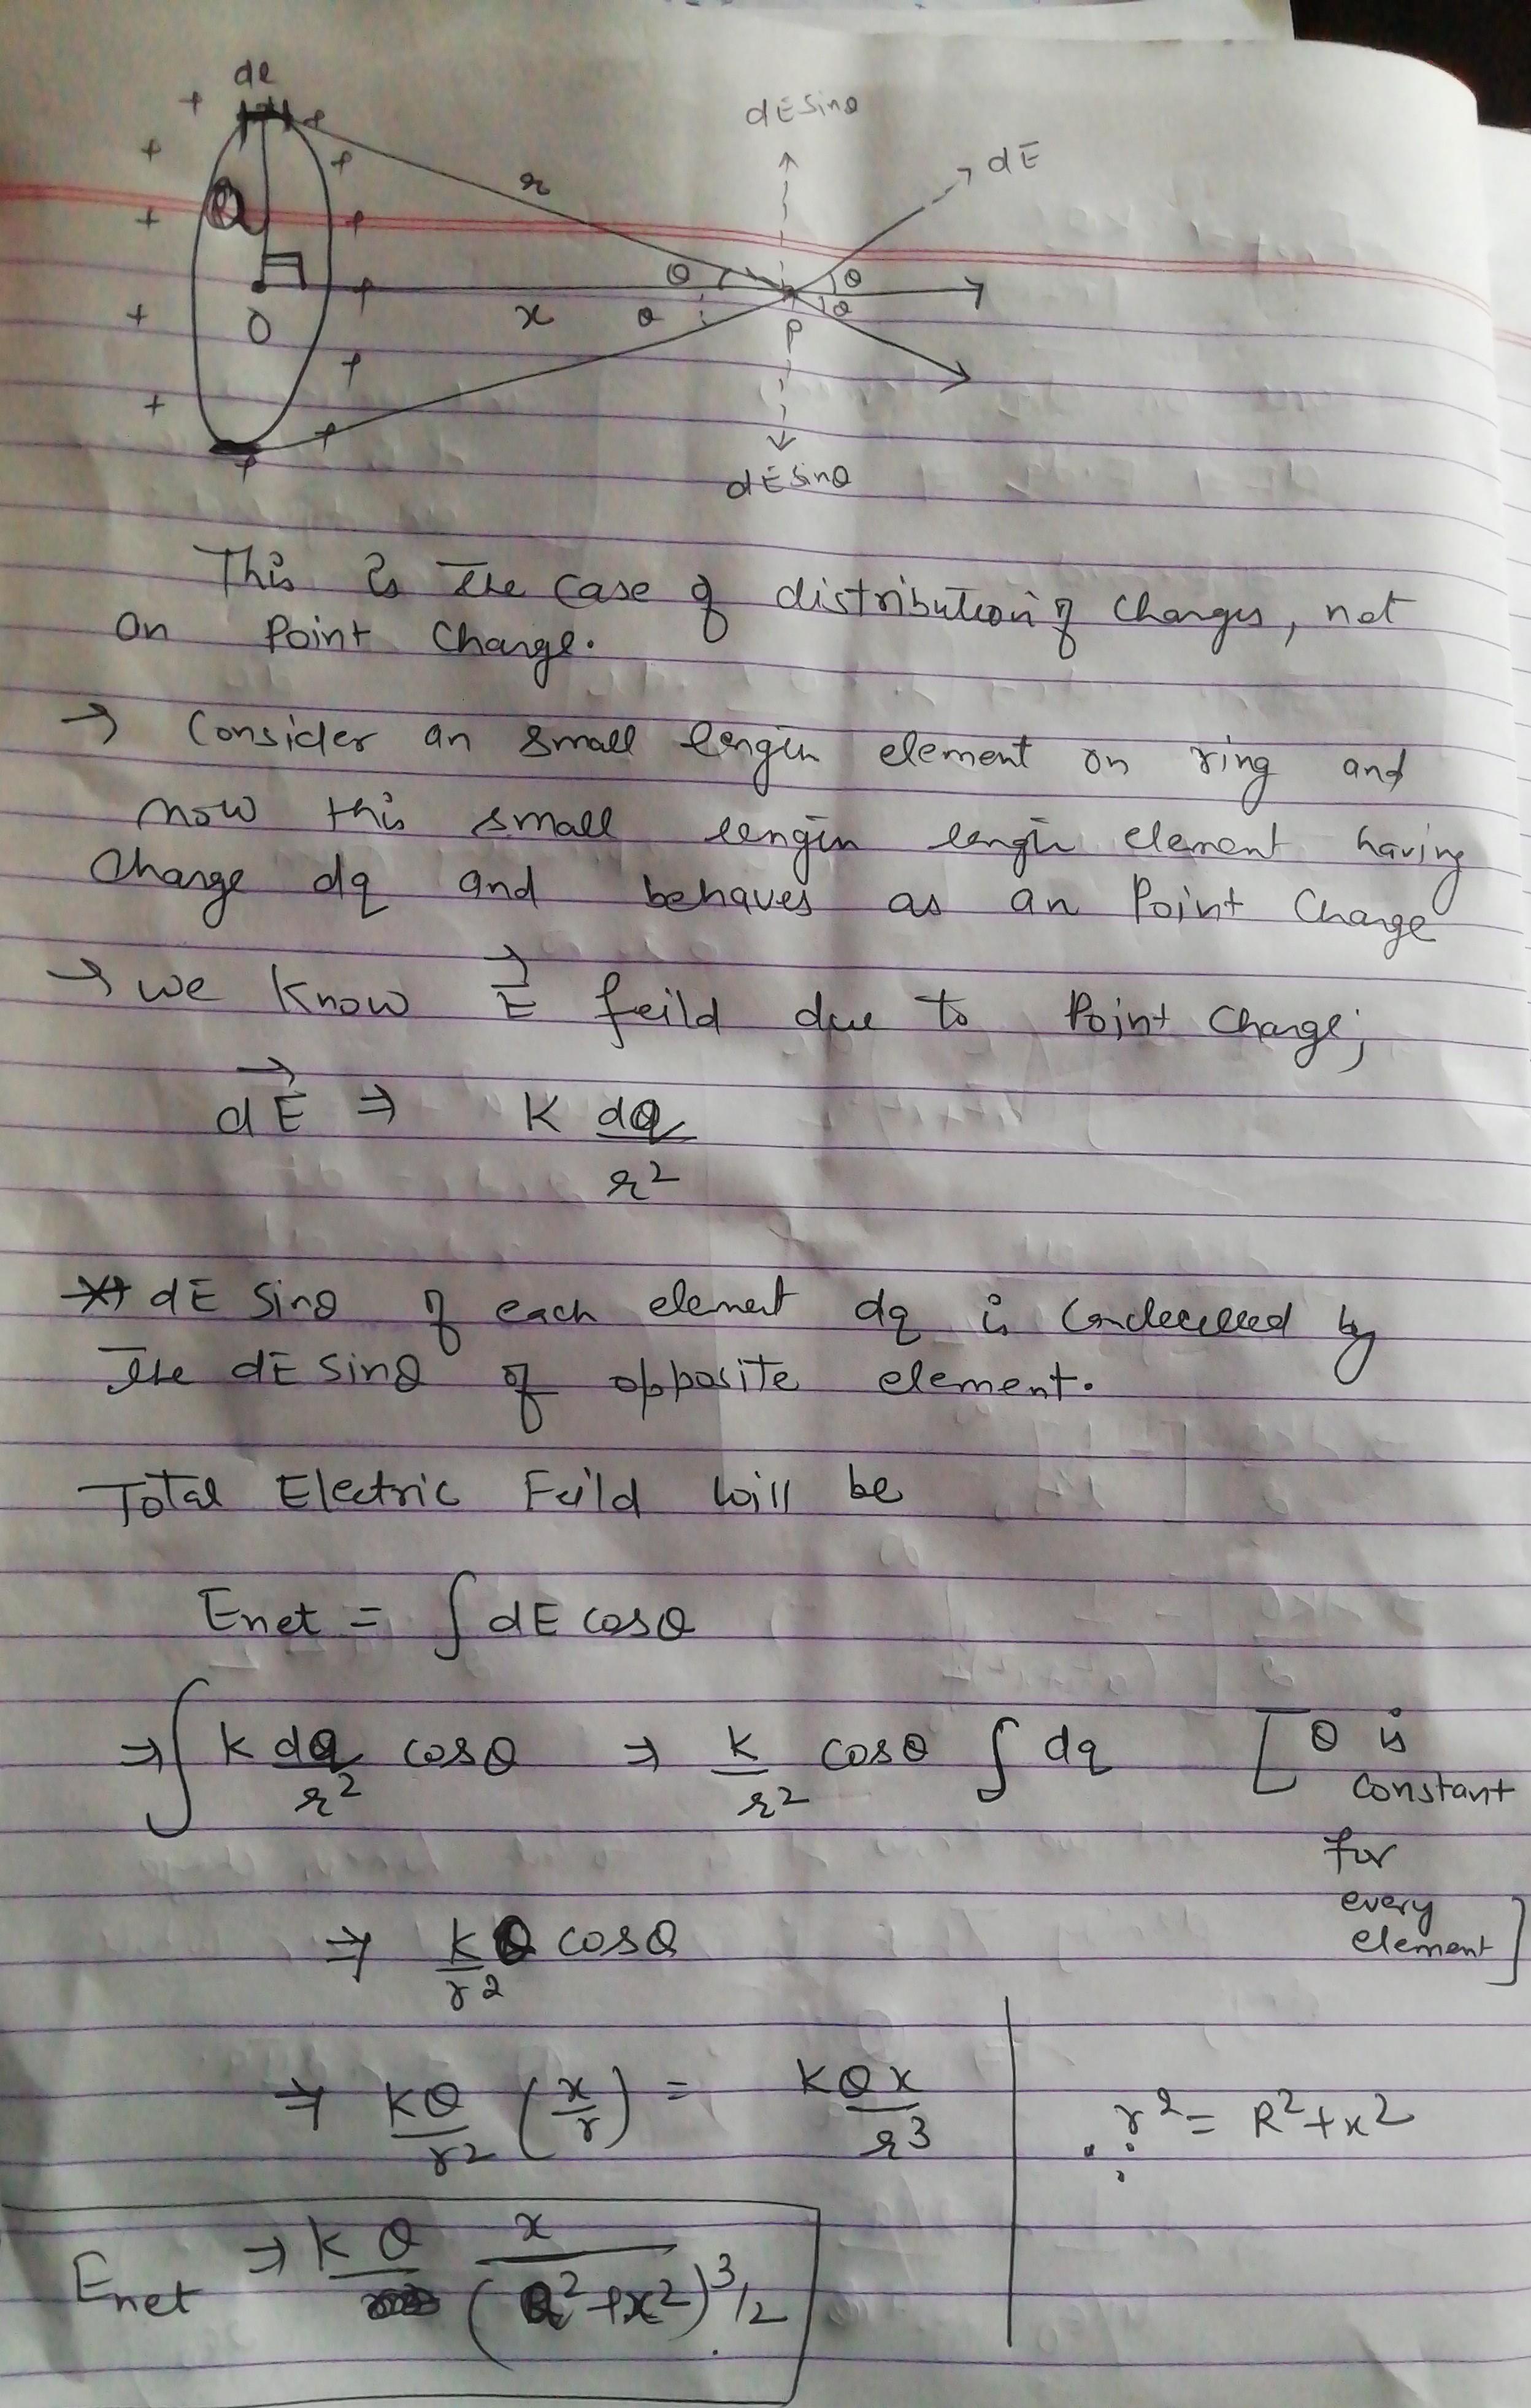 dl
dE sinθ
dE
r
R
θ
θ
x
θ
θ
O
P
dE sinθ
This is the case of distribution of charges, not
an Point Charge.
→ Consider an small length element on ring and
now this small length length element having
Charge dq and behaves as an Point Charge
→ we know E⃗ feild due to Point Charge;
dE⃗ ⇒ K dq/r²
** dE sinθ of each element dq is by
the dE sinθ of opposite element.
Total Electric Feild will be
Enet = ∫ dE cosθ
⇒ ∫ k dq/r² cosθ ⇒ k/r² cosθ ∫ dq [θ is
constant
for
every
element]
⇒ kQ/r² cosθ
⇒ KQ/r² (x/r) = KQx/r³
∵ r² = R² + x²
Enet ⇒ KQ x/(R²+x²)^3/2